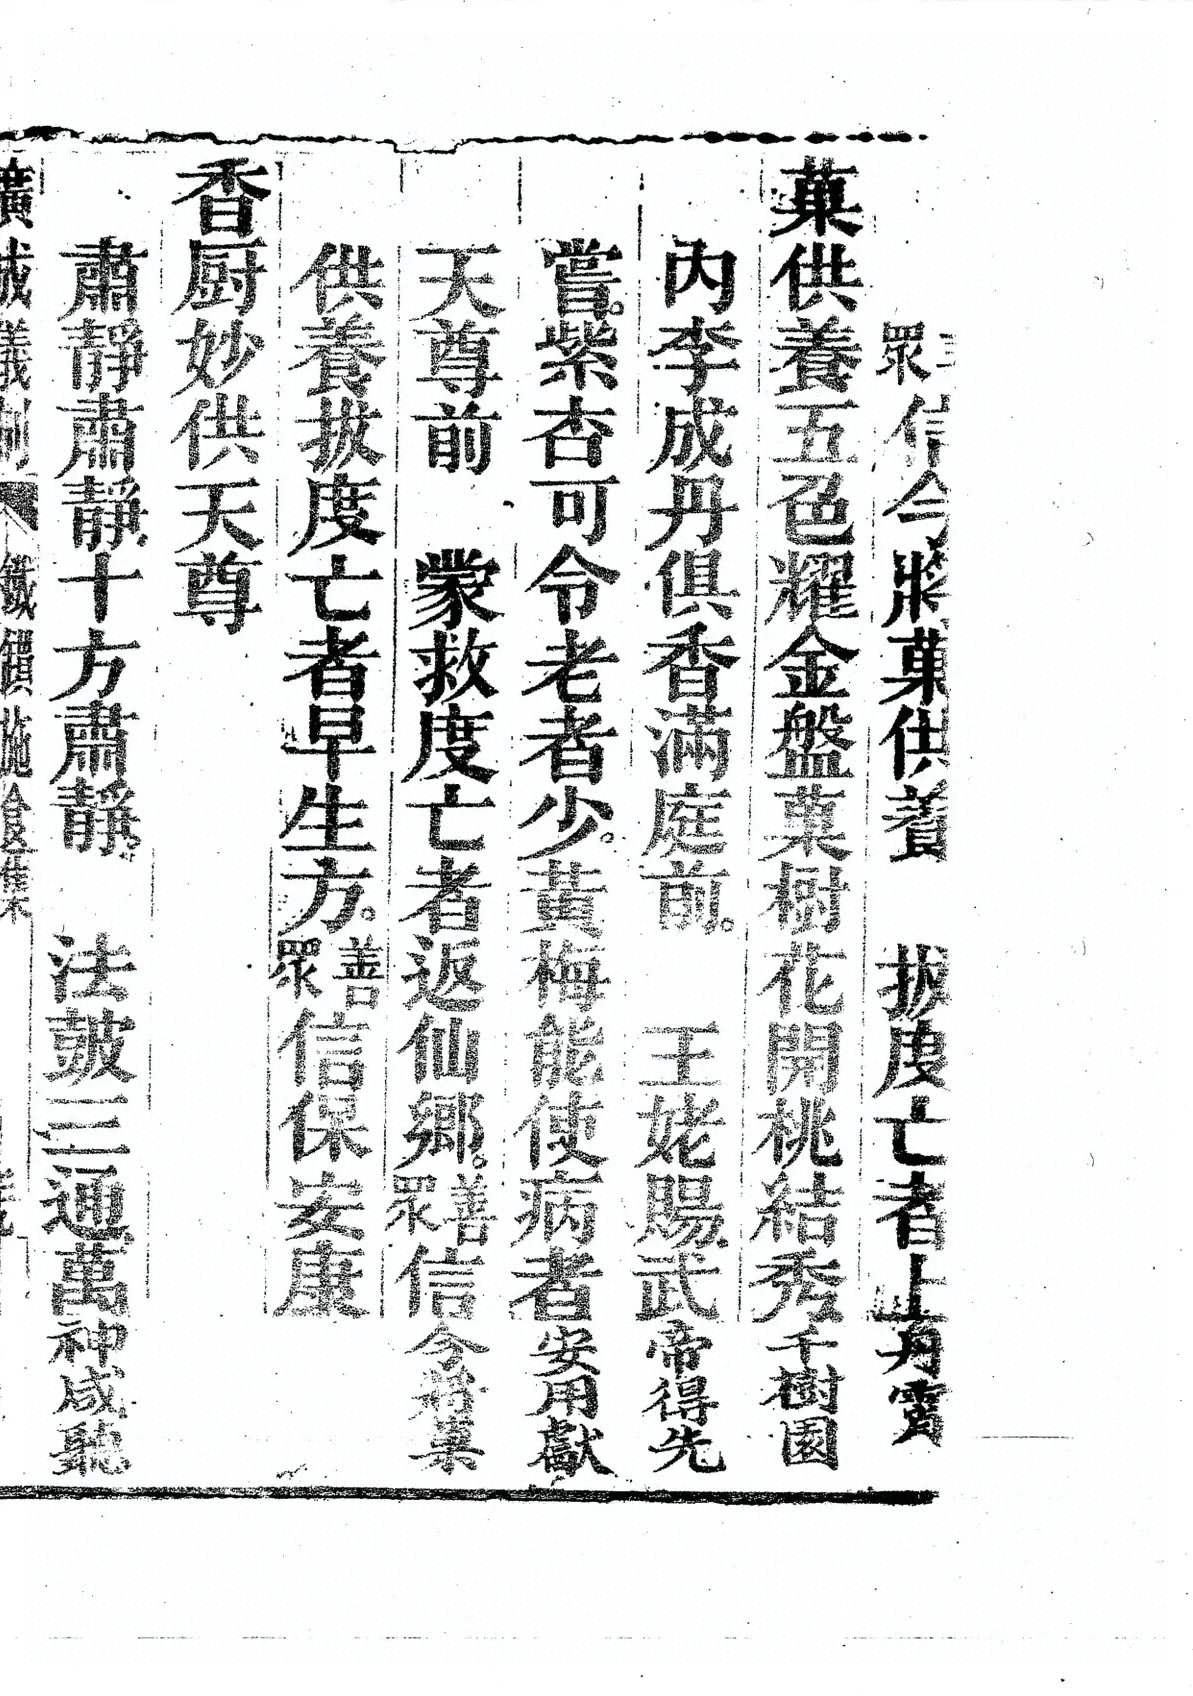 善眾信今將菓供養　拔度亡者上丹霄
菓供養五色耀金盤菓樹花開桃結秀千樹園
內李成丹俱香滿庭前。　王姥賜武帝得先
嘗。紫杏可令老者少。黃梅能使病者安用獻
天尊前　蒙救度亡者返仙鄉。善眾信今將菓
供養拔度亡者早生方。善眾信保安康
香厨妙供天尊
肅靜肅靜十方肅靜。　法皷三通萬神咸聽
廣成儀制　鐵鑵施食集